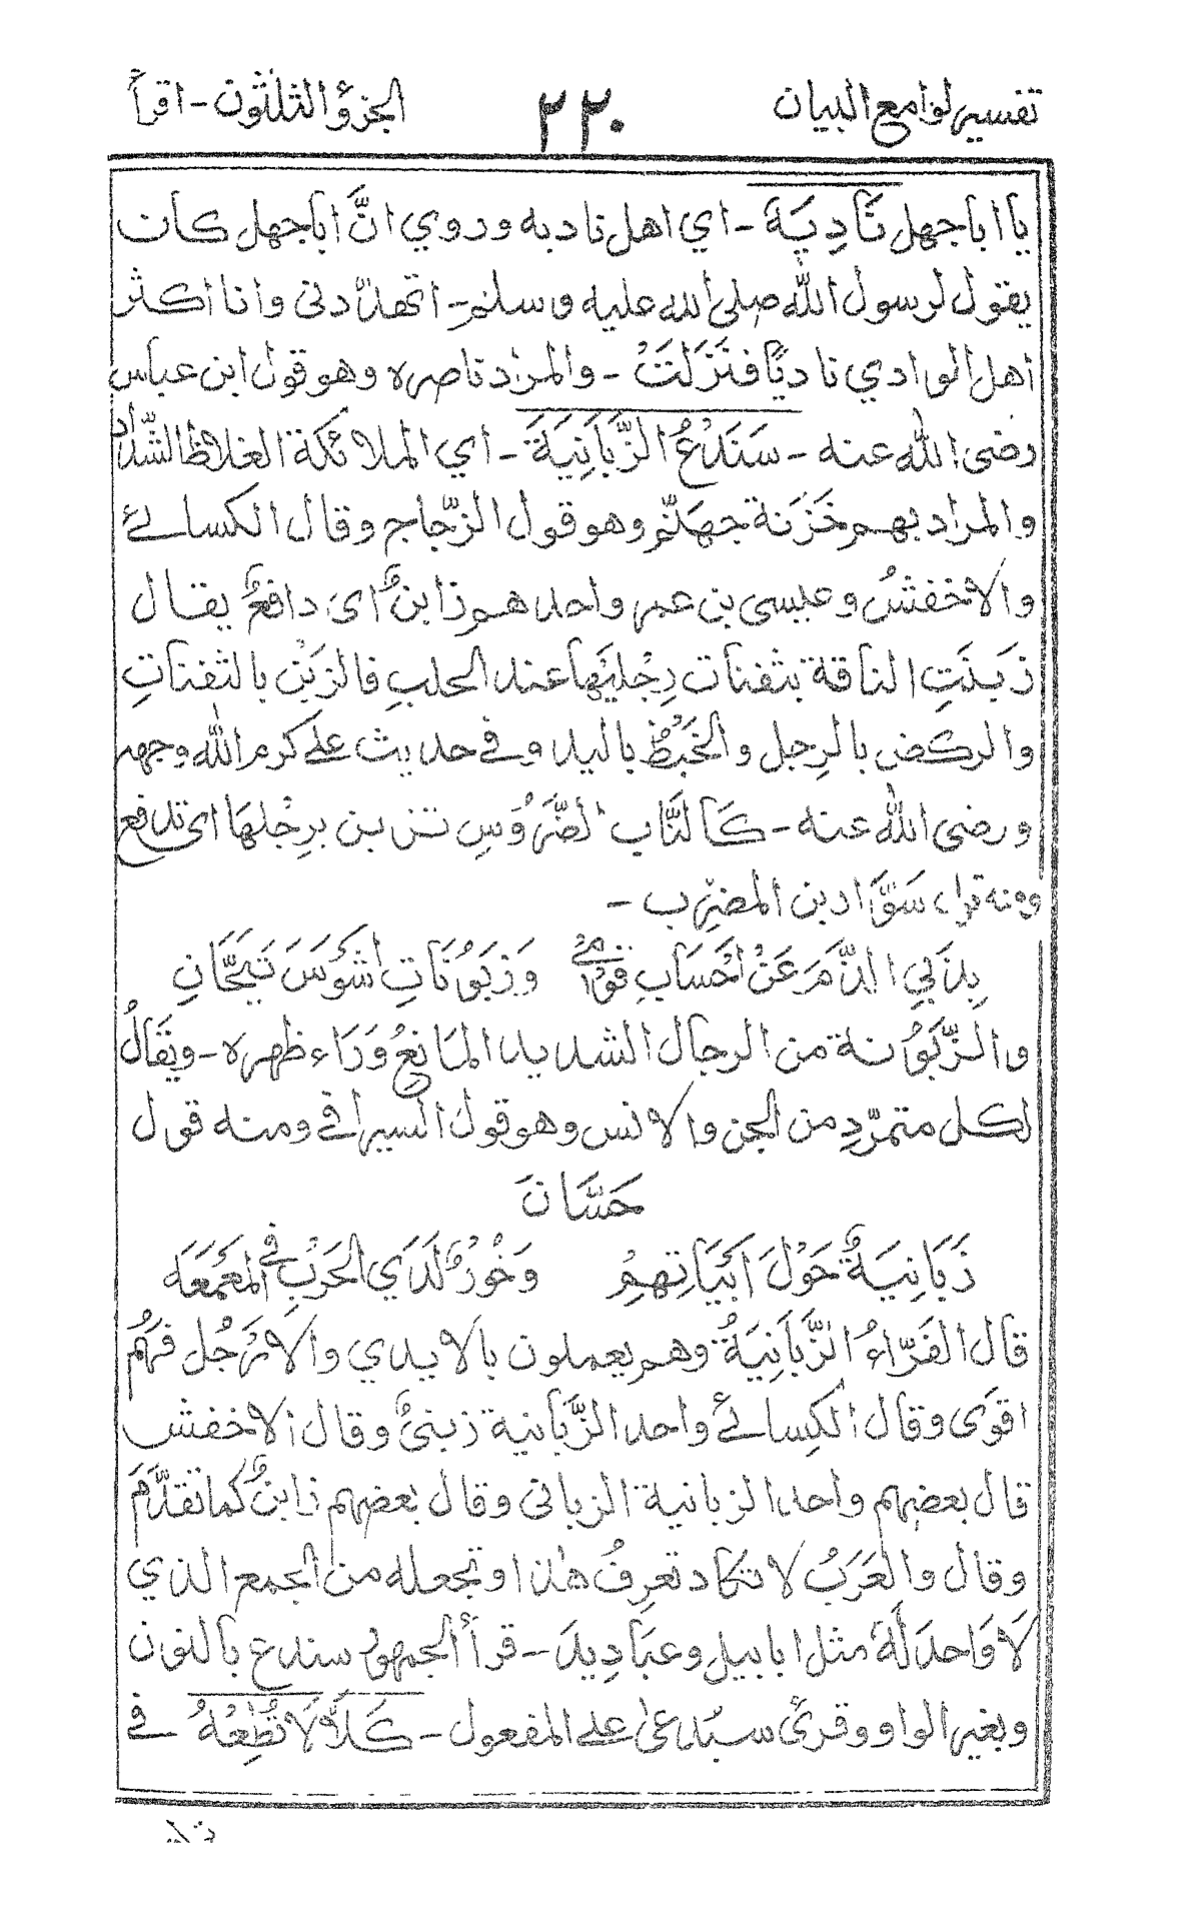 تفسير لوامع البيان ٢٢٠ الجزؤ الثلثون - اقرأ
يا ابا جهل نَادِيَهُ - اي اهل ناديه وروي انَّ ابا جهل كان
يقول لرسول الله صلى الله عليه وسلم - اتهدّدني وانا اكثر
اهل الوادي ناديًا فنَزَلَتْ - والمراد ناصره وهو قول ابن عباس
رضى الله عنه - سَنَدْعُ الزَّبَانِيَةَ - اي الملائكة الغلاظ الشّداد
والمراد بهم خَزَنة جهنّم وهو قول الزّجاج وقال الكسائے
والاخفشُ وعيسى بن عمر واحدهم زابنٌ اى دافعٌ يقال
زَبَنَتِ الناقة بثفنات رِجْليَها عند الحلبِ فالزبَنْ بالثفناتِ
والركض بالرِجل والخَبْطُ باليد وفے حديث علے كرم الله وجهه
ورضى الله عنه - كَالنَّاب الضَّرُوْسِ تزبن برِجْلهَا اى تدفع
ومنه قول سَوَّار بن المضرِب -
بِذَبِي الذَّمَ عَنْ اَحْسَابِ قَوْمِے وَزَبُوْنَاتِ اَشْوَسَ تَيَّحَانِ
والزَّبُوْنة من الرجال الشديد المَانِعُ وَرَاء ظهره - ويقَالُ
لكل متمرّدٍ من الجن والانس وهو قول السيرافے ومنه قول
حَسَّانَ
زَبَانِيَةٌ حَوْلَ اَبْيَاتِهِمْ وَخُوْرٌ لَدَي الحَرْبِ فے المَعْمَعَه
قال الفَرّاءُ الزَّبَانِيَةُ وهم يعملون بالايدي والارْجُل فهُمْ
اقوٰى وقال الكِسائے واحد الزَّبانية زبنىٌ وقال الاخفش
قال بعضهم واحد الزبانية الزبانى وقال بعضهم زابنٌ كما تقدَّمَ
وقال والعَرَبُ لا تكاد تعرِفُ هٰذا وتجعله من الجمع الذي
لَا وَاحدَ لَهٗ مثل ابابيل وعبَادِيدَ - قرأ الجمهور سندع بالنون
وبغير الواو وقرئ سيُدعىٰ علے المفعول - كَلَّا لَا تُطِعْهُ فے